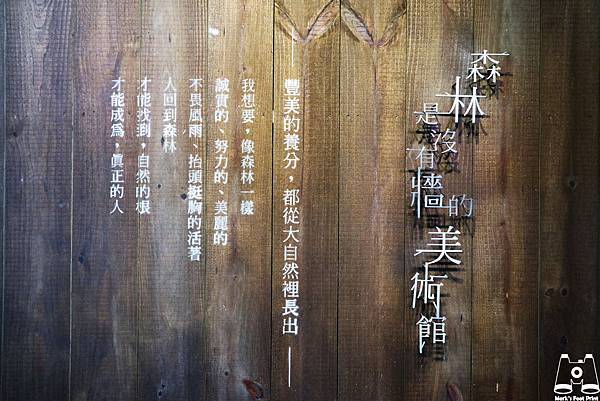 森林是沒有牆的美術館
豐美的養分，都從大自然裡長出
我想要，像森林一樣
誠實的、努力的、美麗的
不畏風雨、抬頭挺胸的活著
人回到森林
才能找到，自然的根
才能成為，真正的人
Mark's Foot Print